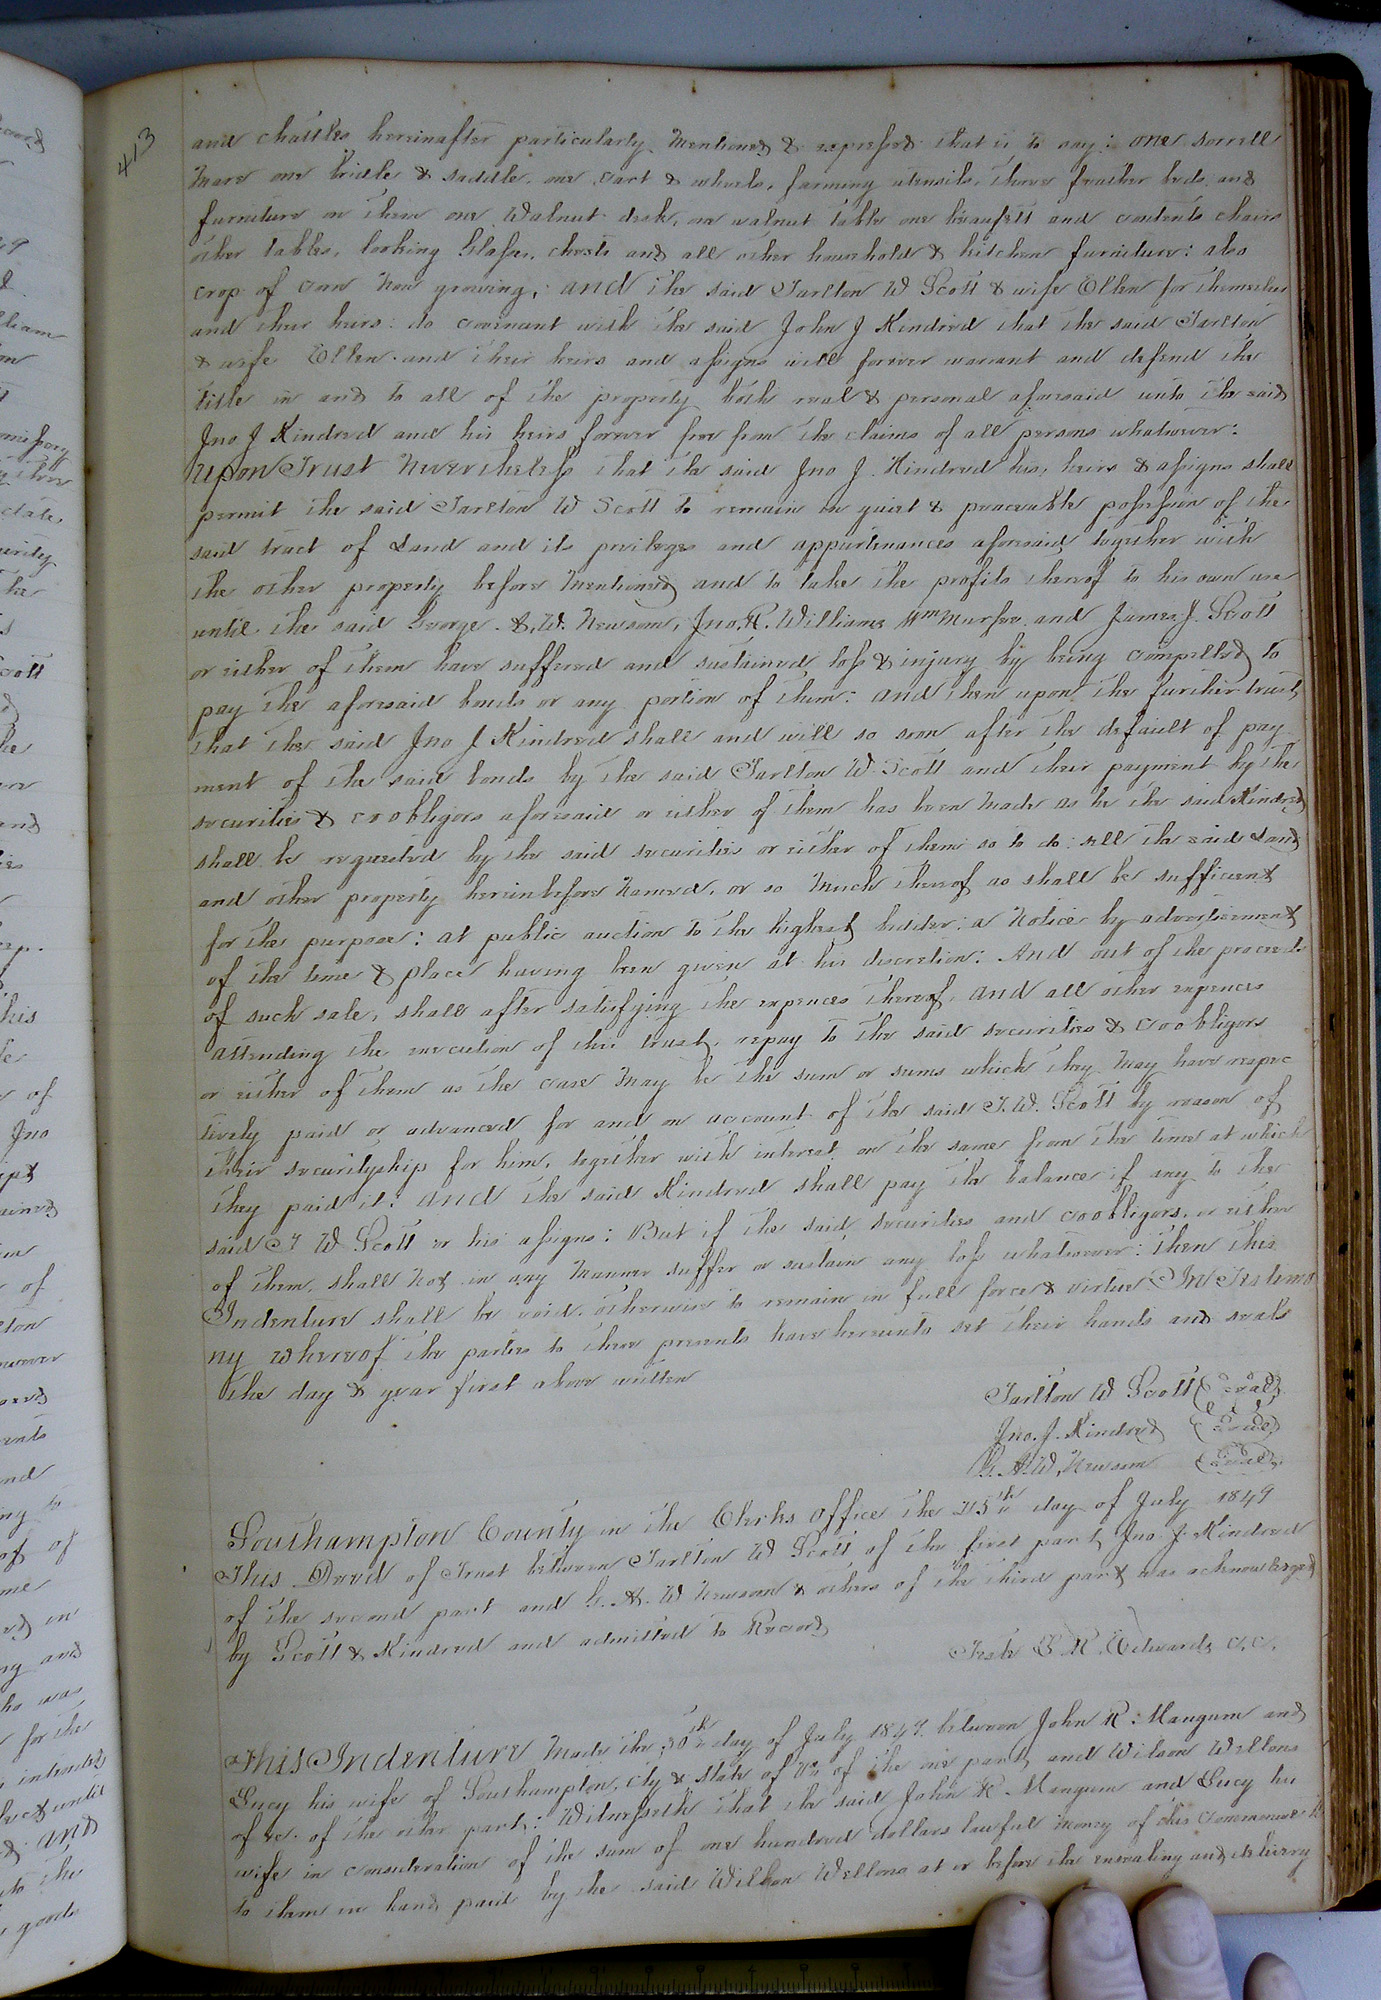 413
and chattles hereinafter particularly Mentioned & expressed that is to say: one sorrell
Mare one bridle & saddle, one cart & wheels, farming utensils, three feather beds and
furniture on them one Walnut desk, one walnut table one beaufett and contents chairs
other tables, looking Glasses, chests and all other household & kitchen furniture: also
crop of corn Now growing; and the said Tarlton W Scott & wife Ellen for themselves
and their heirs do covenant with the said John J Kindred that the said Tarlton
& wife Ellen and their heirs and assigns will forever warrant and defend the
title in and to all of the property both real & personal aforesaid unto the said
Jno J Kindred and his heirs forever free from the claims of all persons whatsoever:
Upon Trust Nevertheless that the said Jno J. Kindred his, heirs & assigns shall
permit the said Tarlton W Scott to remain in quiet & peaceable possession of the
said tract of Land and its privileges and appurtenances aforesaid together with
the other property before Mentioned and to take the profits thereof to his own use
until the said George A. W. Newsom, Jno. R. Williams Wm Murfee and James J. Scott
or either of them have suffered and sustained loss & injury by being compelled to
pay the aforesaid bonds or any portion of them: and then upon the further trust,
that the said Jno J Kindred shall and will so soon after the default of pay
ment of the said bonds by the said Tarlton W. Scott and their payment by the
securities & coobligors aforesaid or either of them has been Made as he the said Kindred
shall be requested by the said securities or either of them so to do: sell the said Land
and other property hereinbefore Named, or so Much thereof as shall be sufficient
for the purpose: at public auction to the highest bidder: a Notice by advertisement
of the time & place having been given at his discretion: And out of the proceeds
of such sale, shall after satisfying the expences thereof, and all other expences
attending the execution of this trust, repay to the said securities & coobligors
or either of them as the case May be the sum or sums which they May have respec
tively paid or advanced for and on account of the said T. W. Scott by reason of
their securityship for him, together with interest on the same from the time at which
they paid it: and the said Kindred shall pay the balance if any to the
said T W Scott or his assigns: But if the said, securities and coobligors, or either
of them, shall Not in any Manner suffer or sustain any loss whatsoever: then this
Indenture shall be void, otherwise to remain in full force & virtue In Testimo
ny whereof the parties to these presents have hereunto set their hands and seals
the day & year first above written
Tarlton W Scott (Seal)
Jno. J. Kindred (Seal)
G. A. W. Newsom (Seal)
Southampton County in the Clerks Office the 25th day of July 1849
This Deed of Trust between Tarlton W Scott of the first part, Jno. J. Kindred
of the second part and G. A. W Newsom & others of the third part was acknowledged
by Scott & Kindred and admitted to Record
Teste L R. Edwards C. C.
This Indenture Made the 30th day of July 1849. between John R. Mangum and
Lucy his wife of Southampton, Cty & State of Va of the one part, and Wilson Wellons
of &c. of the other part: Witnesseth that the said John R. Mangum and Lucy his
wife in consideration of the sum of one hundred dollars lawful money of this Commonwealth
to them in hand paid by the said Wilson Wellons at or before the ensealing and delivery